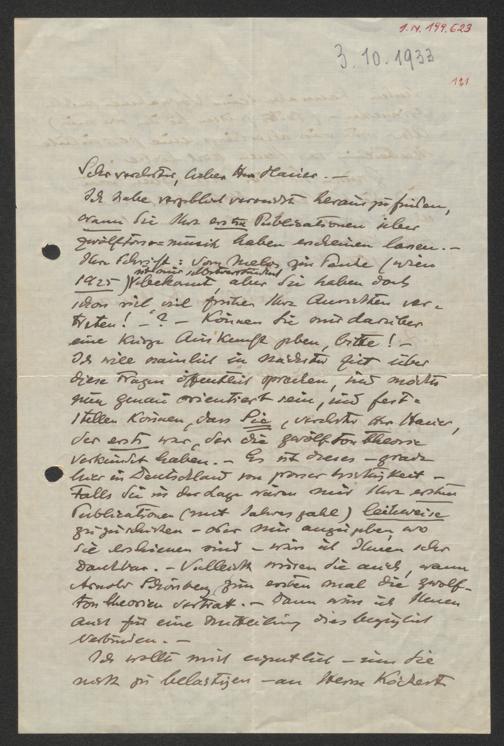 I.N. 199.623
3.10.1933
121
Sehr verehrter, lieber Herr Hauer. —
Ich habe vergeblich versucht herauszufinden,
wann Sie Ihre erste Publicationen über
zwölftonmusik haben erscheinen lassen. —
Ihre Schrift: Vom Melos zur Pauke (Wien
1925) ist mir selbstverständlich
bekannt, aber Sie haben doch
schon viel viel früher Ihre Ansichten ver-
treten! — ? — Können Sie mir darüber
eine kurze Auskunft geben, bitte! —
Ich will nämlich in nächster Zeit über
diese Fragen öffentlich sprechen, und möchte
nun genau orientiert sein, und fest-
stellen können, dass Sie, verehrter Herr Hauer,
der erste war, der die zwölftontheorie
verkündet haben. — Es ist dieses — grade
hier in Deutschland von grosser Wichtigkeit —
Falls Sie in der Lage wären mir Ihre ersten
Publicationen (mit Jahreszahl) leihweise
zuzuschicken — oder mir anzugeben, wo
sie erschienen sind — wäre ich Ihnen sehr
dankbar. — Vielleicht wissen Sie auch, wann
Arnold Schönberg zum ersten mal die zwölf-
tontheorien vertrat. — Dann wäre ich Ihnen
auch für eine Mitteilung dies bezüglich
verbunden. —
Ich wollte mich eigentlich — um Sie
nicht zu belästigen — an Herrn Köchert